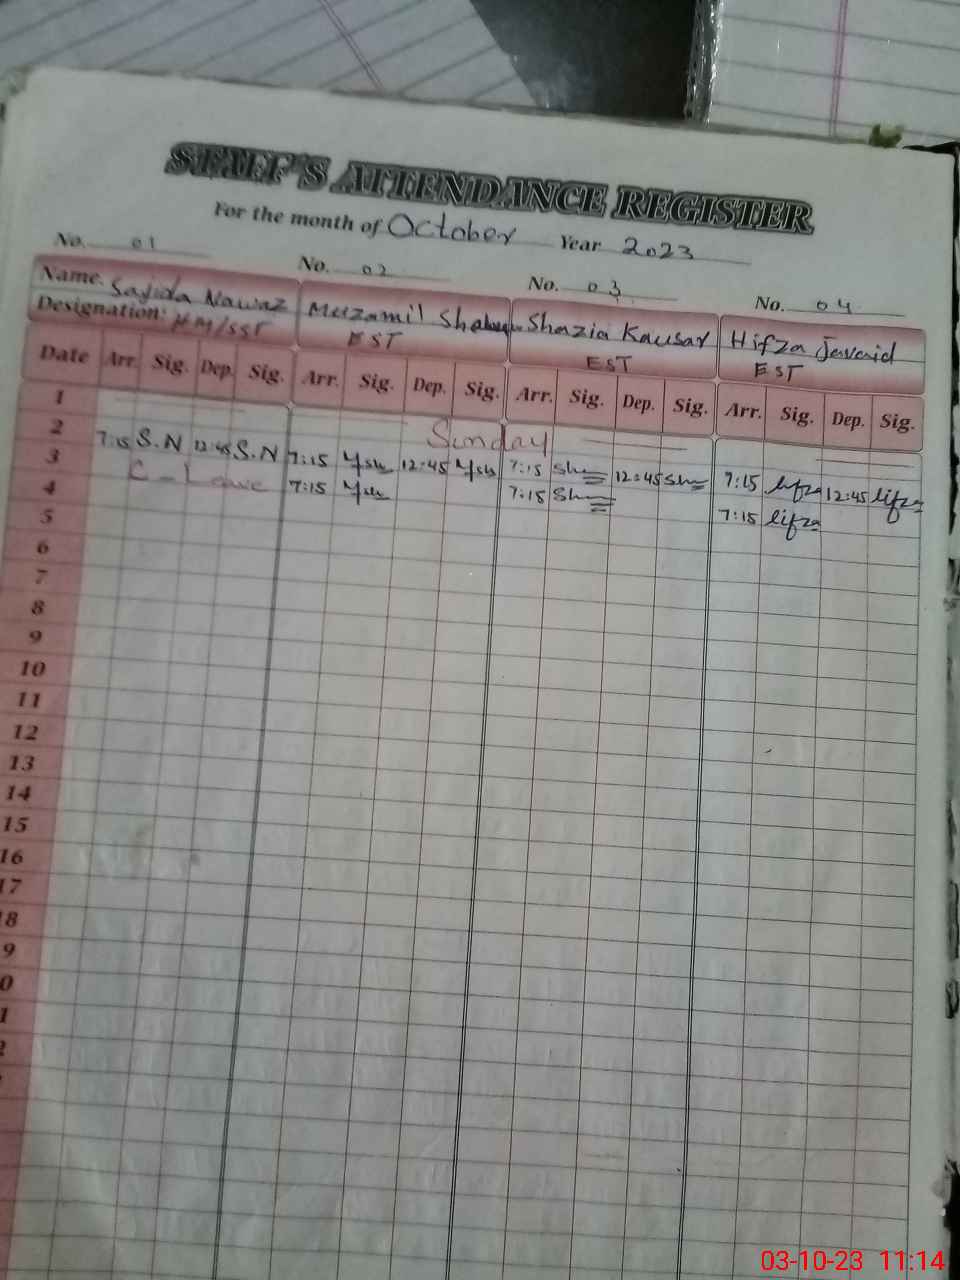 STAFF'S ATTENDANCE REGISTER
For the month of October Year 2023
No. 01 No. 02 No. 03 No. 04
Name. Sajida Nawaz Muzamil Shazia Kausar Hifza Javaid
Designation: HM/SST EST EST EST
Date Arr. Sig. Dep. Sig. Arr. Sig. Dep. Sig. Arr. Sig. Dep. Sig. Arr. Sig. Dep. Sig.
1 Sunday
2 7:15 S.N 12:45 S.N 7:15 12:45 7:15 12:45 7:15 12:45
3 C-Leave 7:15 7:15 7:15
4
5
6
7
8
9
10
11
12
13
14
15
16
17
18
9
0
1
2
03-10-23 11:14